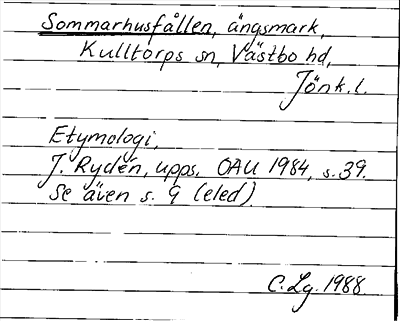 Sommarhusfållen, ängsmark,
Kulltorps sn, Västbo hd,
Jönk. l.
Etymologi,
J. Rydén, upps. OAU 1984, s. 39.
Se även s. 9 (eled)
C. Lg. 1988